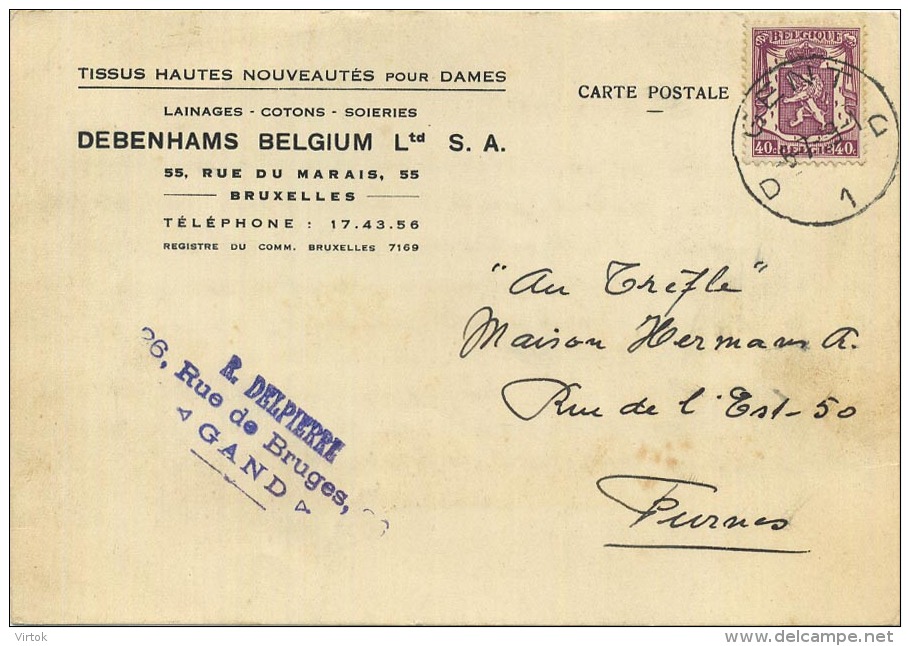 TISSUS HAUTES NOUVEAUTÉS POUR DAMES
LAINAGES - COTONS - SOIERIES
DEBENHAMS BELGIUM Ltd S. A.
55, RUE DU MARAIS, 55
BRUXELLES
TÉLÉPHONE : 17.43.56
REGISTRE DU COMM. BRUXELLES 7169
CARTE POSTALE
BELGIQUE
40c BELGIE 40c
GENT
D 1 D
"Au Trèfle"
Maison Hermans A.
Rue de l'Est-50
Furnes
R. DELPIERRE
26, Rue de Bruges,
GAND
Virtok
delcampe.net